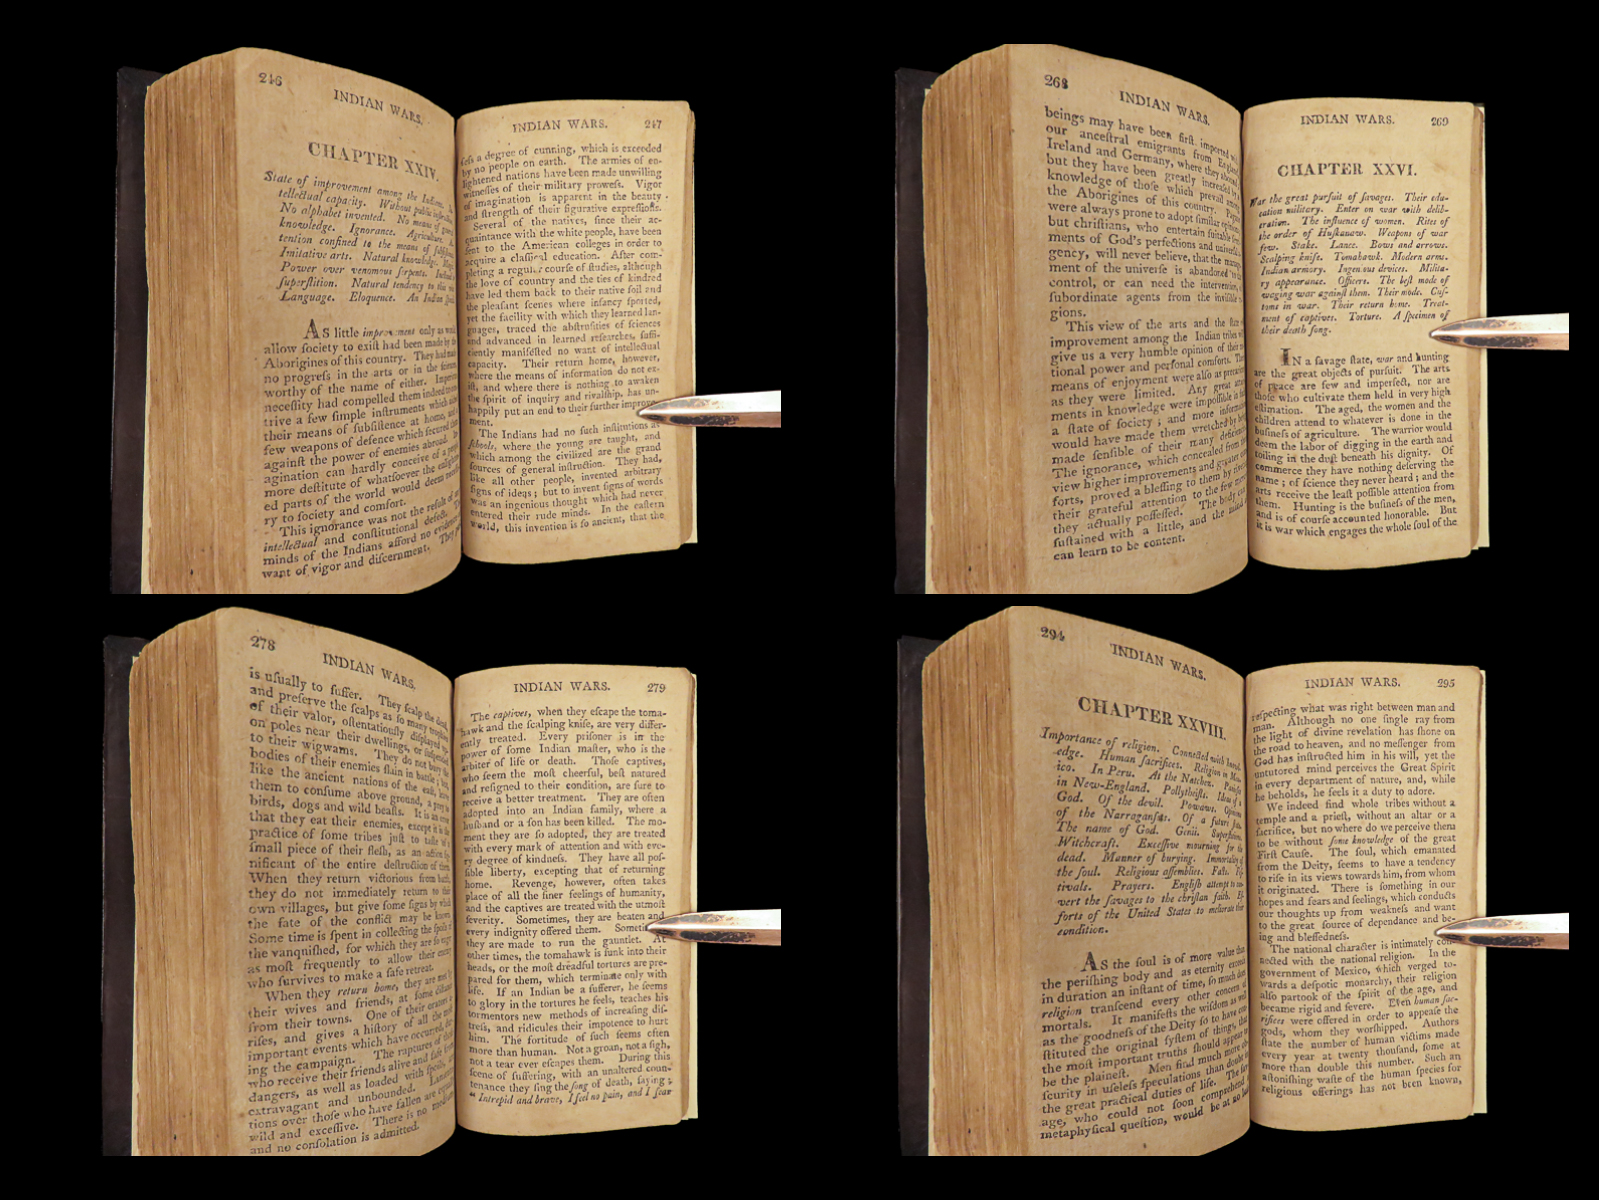 246
INDIAN WARS.
CHAPTER XXIV.
State of improvement among the Indians. In-
tellectual capacity. Without public
No alphabet invented. No means of
knowledge. Ignorance. Agriculture.
tention confined to the means of
Imitative arts. Natural knowledge.
Power over venomous serpents.
superſtition. Natural tendency to
Language. Eloquence. An Indian
As little improvement only as would
allow ſociety to exiſt had been made by the
Aborigines of this country. They had made
no progreſs in the arts or in the
worthy of the name of either.
neceſſity had compelled them indeed to con-
trive a few ſimple inſtruments which
their means of ſubſiſtence at home, and a
few weapons of defence which ſecured
againſt the power of enemies abroad.
agination can hardly conceive of a people
more deſtitute of whatſoever the enlighten-
ed parts of the world would deem
ry to ſociety and comfort.
This ignorance was not the reſult of
intellectual and conſtitutional defect. The
minds of the Indians afford no evidence
want of vigor and diſcernment. They
INDIAN WARS. 247
ſeſs a degree of cunning, which is exceeded
by no people on earth. The armies of en-
lightened nations have been made unwilling
witneſſes of their military proweſs. Vigor
of imagination is apparent in the beauty
and ſtrength of their figurative expreſſions.
Several of the natives, ſince their ac-
quaintance with the white people, have been
ſent to the American colleges in order to
acquire a claſſical education. After com-
pleting a regular courſe of ſtudies, although
the love of country and the ties of kindred
have led them back to their native ſoil and
the pleaſant ſcenes where infancy ſported,
yet the facility with which they learned lan-
guages, traced the abſtruſities of ſciences
and advanced in learned reſearches, ſuffi-
ciently manifeſted no want of intellectual
capacity. Their return home, however,
where the means of information do not ex-
iſt, and where there is nothing to awaken
the ſpirit of inquiry and rivalſhip, has un-
happily put an end to their further improve-
ment.
The Indians had no ſuch inſtitutions as
ſchools, where the young are taught, and
which among the civilized are the grand
ſources of general inſtruction. They had,
like all other people, invented arbitrary
ſigns of ideas; but to invent ſigns of words
was an ingenious thought which had never
entered their rude minds. In the eaſtern
world, this invention is ſo ancient, that the
268
INDIAN WARS.
beings may have been firſt imported with
our anceſtral emigrants from England,
Ireland and Germany, where they abound,
but they have been greatly increaſed by
knowledge of thoſe which prevail among
the Aborigines of this country. Pagans
were always prone to adopt ſimilar opinions,
but chriſtians, who entertain ſuitable ſenti-
ments of God's perfections and univerſal
gency, will never believe, that the manage-
ment of the univerſe is abandoned to
control, or can need the intervention of
ſubordinate agents from the inviſible re-
gions.
This view of the arts and the ſtate of
improvement among the Indian tribes will
give us a very humble opinion of their
tional power and perſonal comforts. Their
means of enjoyment were alſo as
as they were limited. Any great attain-
ments in knowledge were impoſſible in ſuch
a ſtate of ſociety; and more information
would have made them wretched by being
made ſenſible of their many deficiencies.
The ignorance, which concealed from their
view higher improvements and greater com-
forts, proved a bleſſing to them by
their grateful attention to the few
they actually poſſeſſed. The body can be
ſuſtained with a little, and the mind
can learn to be content.
INDIAN WARS. 269
CHAPTER XXVI.
War the great purſuit of ſavages. Their edu-
cation military. Enter on war with delib-
eration. The influence of women. Rites of
the order of Huſkanaw. Weapons of war
few. Stake. Lance. Bows and arrows.
Scalping knife. Tomahawk. Modern arms.
Indian armory. Ingenious devices. Milita-
ry appearance. Officers. The beſt mode of
waging war againſt them. Their mode. Cuſ-
toms in war. Their return home. Treat-
ment of captives. Torture. A ſpecimen of
their death ſong.
In a ſavage ſtate, war and hunting
are the great objects of purſuit. The arts
of peace are few and imperfect, nor are
thoſe who cultivate them held in very high
eſtimation. The aged, the women and the
children attend to whatever is done in the
buſineſs of agriculture. The warrior would
deem the labor of digging in the earth and
toiling in the duſt beneath his dignity. Of
commerce they have nothing deſerving the
name; of ſcience they never heard; and the
arts receive the leaſt poſſible attention from
them. Hunting is the buſineſs of the men,
and is of courſe accounted honorable. But
it is war which engages the whole ſoul of the
278
INDIAN WARS.
is uſually to ſuffer. They ſcalp the dead,
and preſerve the ſcalps as ſo many trophies
of their valor, oſtentatiouſly diſplayed
on poles near their dwellings, or ſuſpended
to their wigwams. They do not bury the
bodies of their enemies ſlain in battle; but,
like the ancient nations of the eaſt, leave
them to conſume above ground, a prey to
birds, dogs and wild beaſts. It is an error
that they eat their enemies, except it is the
practice of ſome tribes juſt to taſte of a
ſmall piece of their fleſh, as an action ſig-
nificant of the entire deſtruction of them.
When they return victorious from battle,
they do not immediately return to their
own villages, but give ſome ſigns by which
the fate of the conflict may be known.
Some time is ſpent in collecting the ſpoils of
the vanquiſhed, for which they are ſo eager
as moſt frequently to allow their enemy
who ſurvives to make a ſafe retreat.
When they return home, they are met by
their wives and friends, at ſome diſtance
from their towns. One of their orators
riſes, and gives a hiſtory of all the moſt
important events which have occurred dur-
ing the campaign. The raptures of thoſe
who receive their friends alive and ſafe from
dangers, as well as loaded with ſpoils, are
extravagant and unbounded. Lamenta-
tions over thoſe who have fallen are equally
wild and exceſſive. There is no medium
and no conſolation is admitted.
INDIAN WARS. 279
The captives, when they eſcape the toma-
hawk and the ſcalping knife, are very differ-
ently treated. Every priſoner is in the
power of ſome Indian maſter, who is the
arbiter of life or death. Thoſe captives,
who ſeem the moſt cheerful, beſt natured
and reſigned to their condition, are ſure to
receive a better treatment. They are often
adopted into an Indian family, where a
huſband or a ſon has been killed. The mo-
ment they are ſo adopted, they are treated
with every mark of attention and with eve-
ry degree of kindneſs. They have all poſ-
ſible liberty, excepting that of returning
home. Revenge, however, often takes
place of all the finer feelings of humanity,
and the captives are treated with the utmoſt
ſeverity. Sometimes, they are beaten and
every indignity offered them. Sometimes
they are made to run the gauntlet. At
other times, the tomahawk is ſunk into their
heads, or the moſt dreadful tortures are pre-
pared for them, which terminate only with
life. If an Indian be a ſufferer, he ſeems
to glory in the tortures he feels, teaches his
tormentors new methods of increaſing diſ-
treſs, and ridicules their impotence to hurt
him. The fortitude of ſuch ſeems often
more than human. Not a groan, not a ſigh,
not a tear ever eſcapes them. During this
ſcene of ſuffering, with an unaltered coun-
tenance they ſing the ſong of death, ſaying;
"Intrepid and brave, I feel no pain, and I fear
294
INDIAN WARS.
CHAPTER XXVIII.
Importance of religion. Connected with knowl-
edge. Human ſacrifices. Religion in Mex-
ico. In Peru. At the Natchez.
in New-England. Pollytheiſts. Ideas of a
God. Of the devil. Powows. Opinions
of the Narraganſets. Of a future ſtate.
The name of God. Genii. Superſtitions.
Witchcraft. Exceſſive mourning for the
dead. Manner of burying. Immortality of
the ſoul. Religious aſſemblies. Faſts. Feſ-
tivals. Prayers. Engliſh attempt to con-
vert the ſavages to the chriſtian faith. Ef-
forts of the United States to meliorate their
condition.
As the ſoul is of more value than
the periſhing body and as eternity exceeds
in duration an inſtant of time, ſo much does
religion tranſcend every other concern of
mortals. It manifeſts the wiſdom as well
as the goodneſs of the Deity ſo to have con-
ſtituted the original ſyſtem of things, that
the moſt important truths ſhould appear to
be the plaineſt. Men find much more ob-
ſcurity in uſeleſs ſpeculations than doubt in
the great practical duties of life. The
age, who could not ſoon comprehend
metaphyſical queſtion, would be at no loſs
INDIAN WARS. 295
reſpecting what was right between man and
man. Although no one ſingle ray from
the light of divine revelation has ſhone on
the road to heaven, and no meſſenger from
God has inſtructed him in his will, yet the
untutored mind perceives the Great Spirit
in every department of nature, and, while
he beholds, he feels it a duty to adore.
We indeed find whole tribes without a
temple and a prieſt, without an altar or a
ſacrifice, but no where do we perceive them
to be without ſome knowledge of the great
Firſt Cauſe. The ſoul, which emanated
from the Deity, ſeems to have a tendency
to riſe in its views towards him, from whom
it originated. There is ſomething in our
hopes and fears and feelings, which conducts
our thoughts up from weakneſs and want
to the great ſource of dependance and be-
ing and bleſſedneſs.
The national character is intimately con-
nected with the national religion. In the
government of Mexico, which verged to-
wards a deſpotic monarchy, their religion
alſo partook of the ſpirit of the age, and
became rigid and ſevere. Even human ſac-
rifices were offered in order to appeaſe the
gods, whom they worſhipped. Authors
ſtate the number of human victims made
every year at twenty thouſand, ſome at
more than double this number. Such an
aſtoniſhing waſte of the human ſpecies for
religious offerings has not been known,